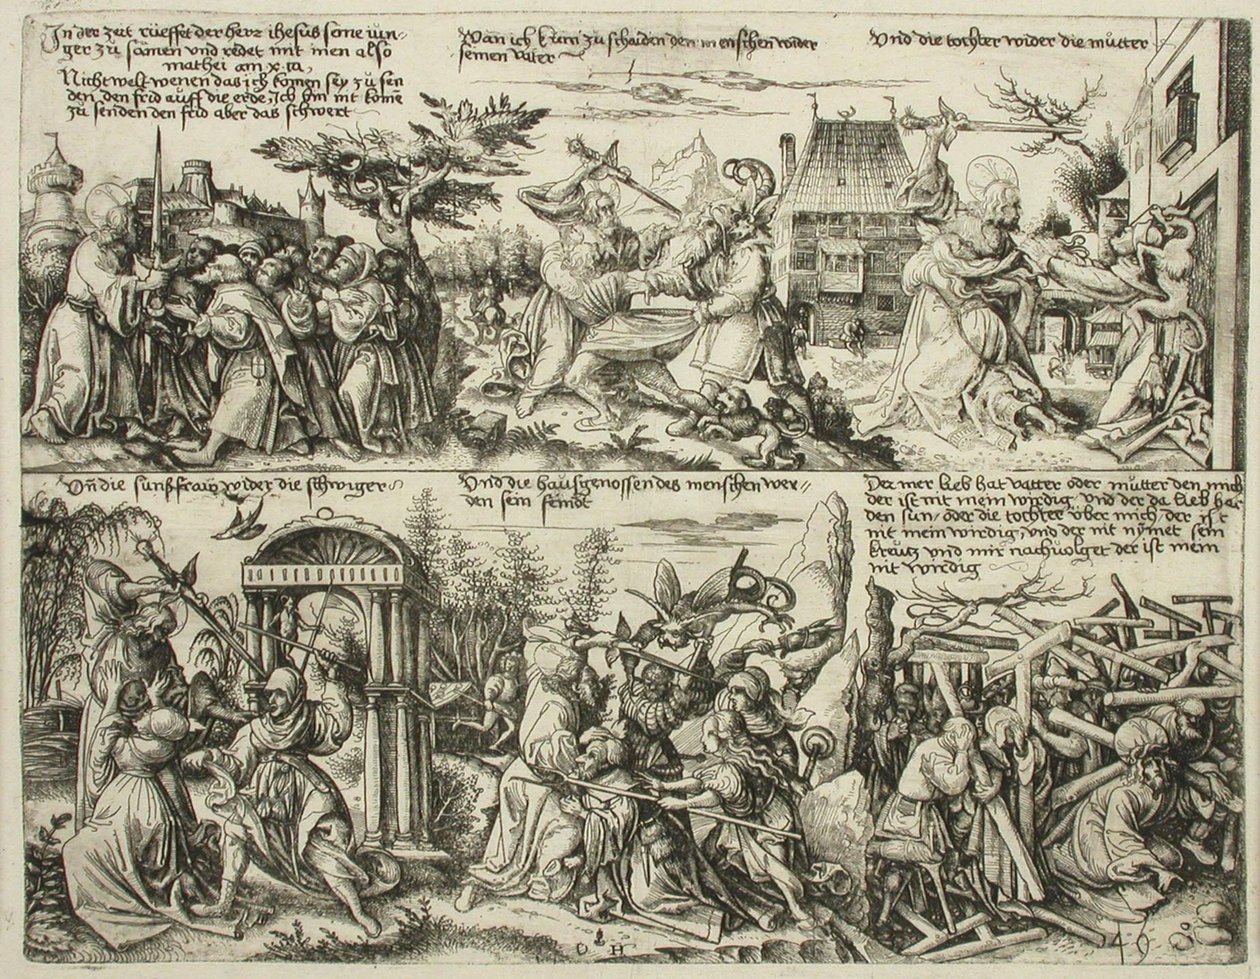 In der zeit rüeffet der herr ihesüs seine iün-
ger zü samen vnd redet mit inen also
mathei am x ca,
Nicht welt wenen das ich komen sey zü sen
den den frid aüff die erde, Ich bin nit kome
zü senden den frid aber das schwert
Wan ich küm zu schaiden den menschen wider
seinen vater
Vnd die tochter wider die mütter
Vn die sunsfraw wider die schwiger
Vnd die hausgenossen des menschen wer-
den sein feindt
Der mer lieb hat vatter oder mütter den mich
der ist mit mein wirdig vnd der da lieb hat
den sun oder die tochter über mich der ist
nit mein wirdig, vnd der nit nymet sein
kreütz vnd mir nachuolget der ist mein
nit wirdig
D H
1549